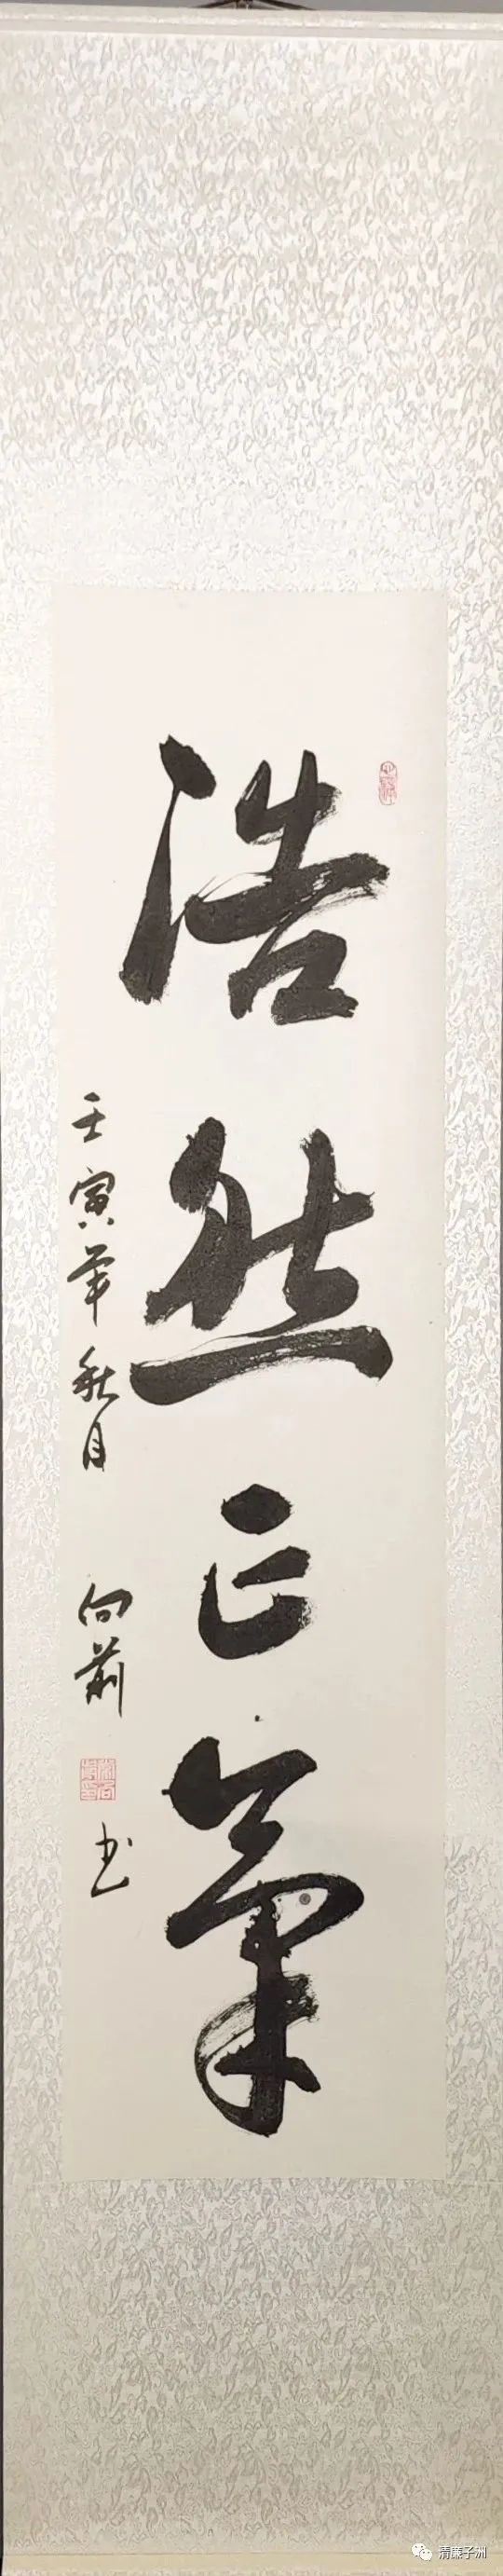 浩然正氣
壬寅年秋月 向前 书
清廉子洲